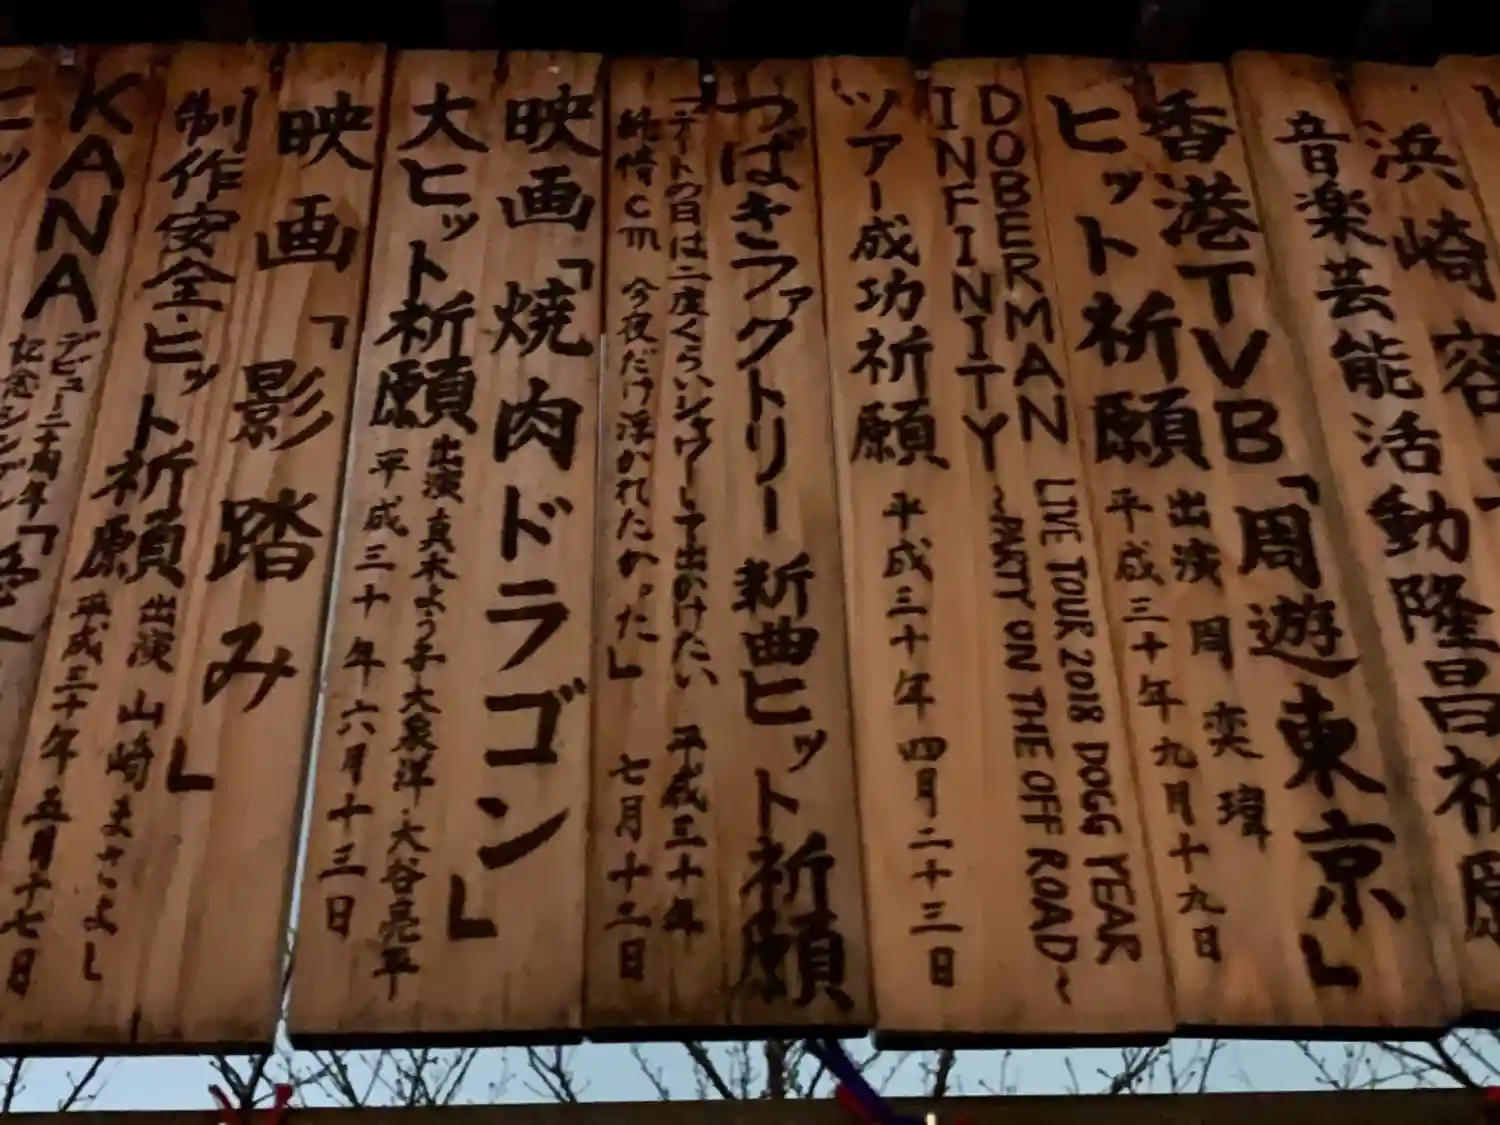 浜崎容子
音楽芸能活動隆昌祈願
香港TVB「周遊東京」
ヒット祈願
出演 周奕瑋
平成三十年九月十九日
DOBERMAN
INFINITY
LIVE TOUR 2018 DOGG YEAR
~PARTY ON THE OFF ROAD~
ツアー成功祈願
平成三十年四月二十三日
つばきファクトリー 新曲ヒット祈願
「デートの日は二度くらいシャワーして出かけたい
純情cm 今夜だけ浮かれたかった」
平成三十年
七月十二日
映画「焼肉ドラゴン」
大ヒット祈願
出演 真木よう子・大泉洋・大谷亮平
平成三十年六月十三日
映画「影踏み」
制作安全・ヒット祈願
出演 山崎まさよし
平成三十年五月十七日
KANA
デビュー二十周年
記念シングル
ヒッ